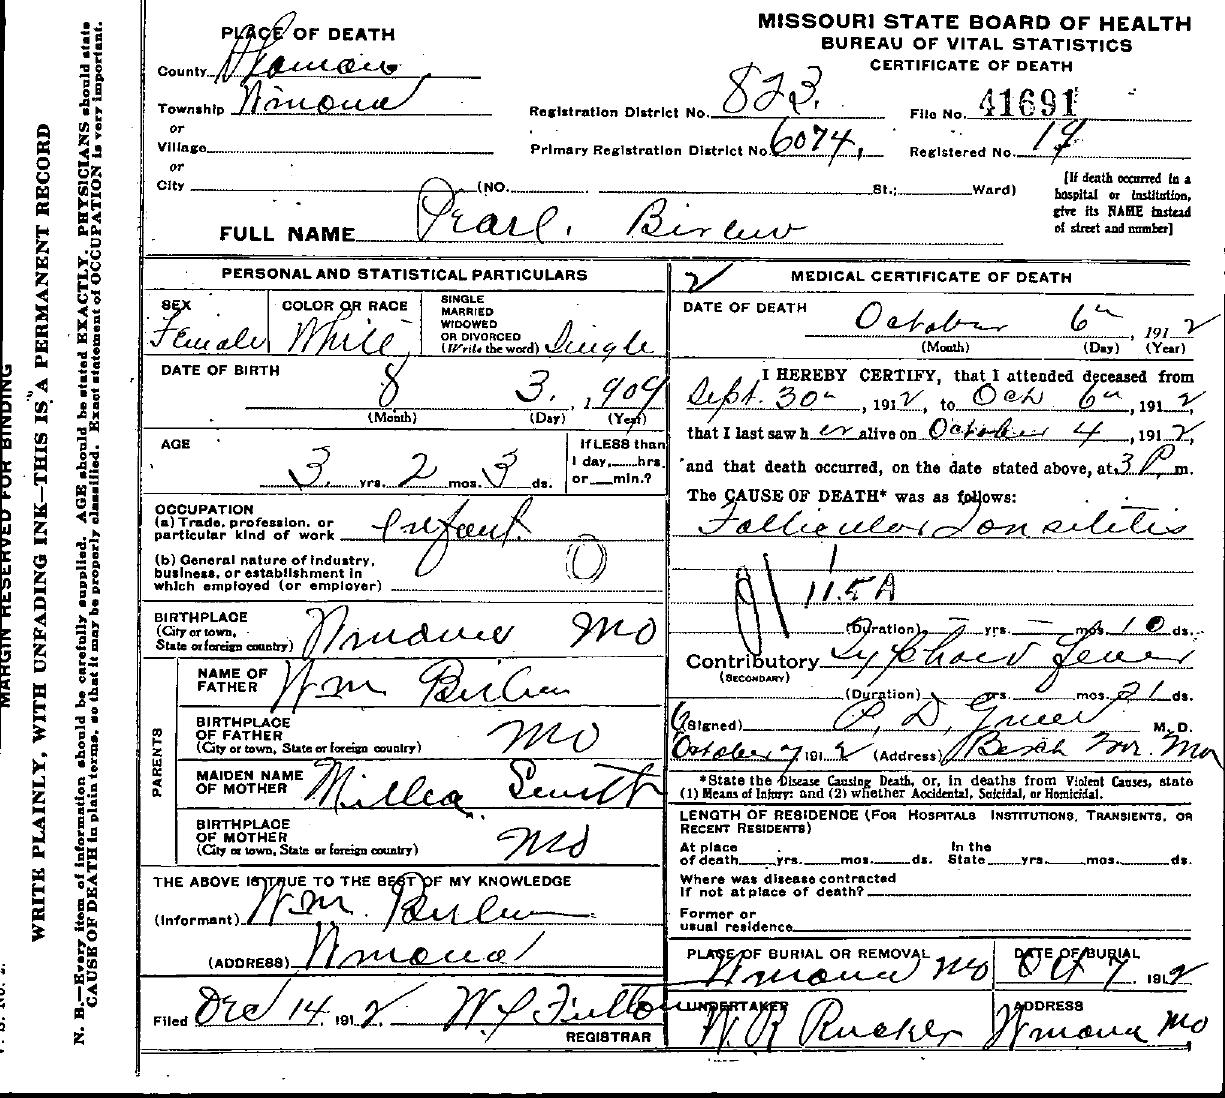 MISSOURI STATE BOARD OF HEALTH
BUREAU OF VITAL STATISTICS
CERTIFICATE OF DEATH
PLACE OF DEATH
County
Township Winona
or
Village
or
City (NO. St.; Ward)
Registration District No. 823.
Primary Registration District No. 6074,
File No. 41691
Registered No. 19
[If death occurred in a
hospital or institution,
give its NAME instead
of street and number]
FULL NAME Pearl.
PERSONAL AND STATISTICAL PARTICULARS
SEX
Female
COLOR OR RACE
White
SINGLE
MARRIED
WIDOWED
OR DIVORCED
(Write the word) Single
DATE OF BIRTH
8 3. , 1909
(Month) (Day) (Year)
AGE
3 yrs. 2 mos. 3 ds.
If LESS than
1 day, hrs.
or min.?
OCCUPATION
(a) Trade, profession, or
particular kind of work infant
(b) General nature of industry,
business, or establishment in
which employed (or employer)
0
BIRTHPLACE
(City or town,
State or foreign country) Winona Mo
PARENTS
NAME OF
FATHER Wm
BIRTHPLACE
OF FATHER
(City or town, State or foreign country) Mo
MAIDEN NAME
OF MOTHER Smith
BIRTHPLACE
OF MOTHER
(City or town, State or foreign country) Mo
THE ABOVE IS TRUE TO THE BEST OF MY KNOWLEDGE
(Informant) Wm.
(ADDRESS) Winona
Filed Dec 14. 1912. W J Fulton
REGISTRAR
2
MEDICAL CERTIFICATE OF DEATH
DATE OF DEATH
October 6th , 1912
(Month) (Day) (Year)
I HEREBY CERTIFY, that I attended deceased from
Sept. 30th , 1912, to Oct 6th , 1912
that I last saw h er alive on October 4 , 1912,
and that death occurred, on the date stated above, at 3 P. m.
The CAUSE OF DEATH* was as follows:
Follicular Tonsilitis
115A
(Duration) yrs. mos. 10 ds.
Contributory Typhoid Fever
(SECONDARY)
(Duration) yrs. mos. 21 ds.
(Signed) M. D.
October 7 1912 (Address) Birch Tree Mo
*State the Disease Causing Death, or, in deaths from Violent Causes, state
(1) Means of Injury; and (2) whether Accidental, Suicidal, or Homicidal.
LENGTH OF RESIDENCE (FOR HOSPITALS INSTITUTIONS, TRANSIENTS, OR
RECENT RESIDENTS)
At place
of death yrs. mos. ds.
In the
State yrs. mos. ds.
Where was disease contracted
if not at place of death?
Former or
usual residence
PLACE OF BURIAL OR REMOVAL
Winona Mo
DATE OF BURIAL
Oct 7 1912
UNDERTAKER
W. R Rucker
ADDRESS
Winona Mo
MARGIN RESERVED FOR BINDING
WRITE PLAINLY, WITH UNFADING INK—THIS IS A PERMANENT RECORD
N. B.—Every item of information should be carefully supplied. AGE should be stated EXACTLY. PHYSICIANS should state
CAUSE OF DEATH in plain terms, so that it may be properly classified. Exact statement of OCCUPATION is very important.